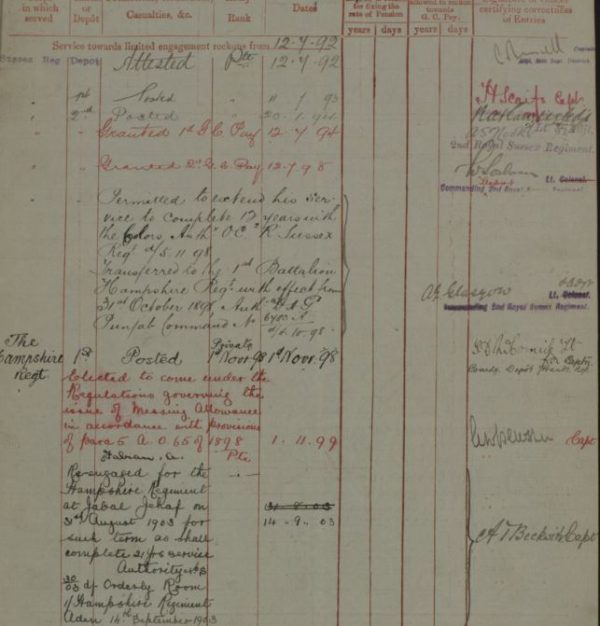 in which served
or Depôt
Casualties, &c.
Rank
Dates
for fixing the rate of Pension
towards G. C. Pay.
certifying correctness of Entries
years days years days
Service towards limited engagement reckons from 12-7-92
Sussex Reg Depôt Attested Pte 12-7-92
1st Posted
2nd Posted
Granted 1st G.C. Pay 12 7 94
2nd Royal Sussex Regiment.
Granted 2nd G.C. Pay 12-7-98
Lt. Colonel.
Commanding 2nd Royal Sussex Regiment.
Permitted to extend his ser-
vice to complete 12 years with
the Colors Auth. O.C. 2nd R. Sussex
Regt d/5.11.98
Transferred to the 1st Battalion
Hampshire Regt with effect from
31st October 1898, Auth.
Punjab Command No 6480 A
d/6.10.98
Glasgow
Lt. Colonel.
Commanding 2nd Royal Sussex Regiment.
The Hampshire Regt
1st Posted Private 1st Nov. 98 1st Nov. 98
Comdg. Depôt Hants Regt
Elected to come under the
Regulations governing the
issue of Messing Allowance
in accordance with provisions
of para 5 A.O. 65 of 1898 1.11.99
Capt
Pte
Re-engaged for the
Hampshire Regiment
at Jabal Jehaf on
31-8-03
3rd August 1903 for
14-9-03
such term as shall
complete 21 yrs service
A T Beckwith Capt
Authority
d/ Orderly Room
1/Hampshire Regiment
Aden 14th September 1903